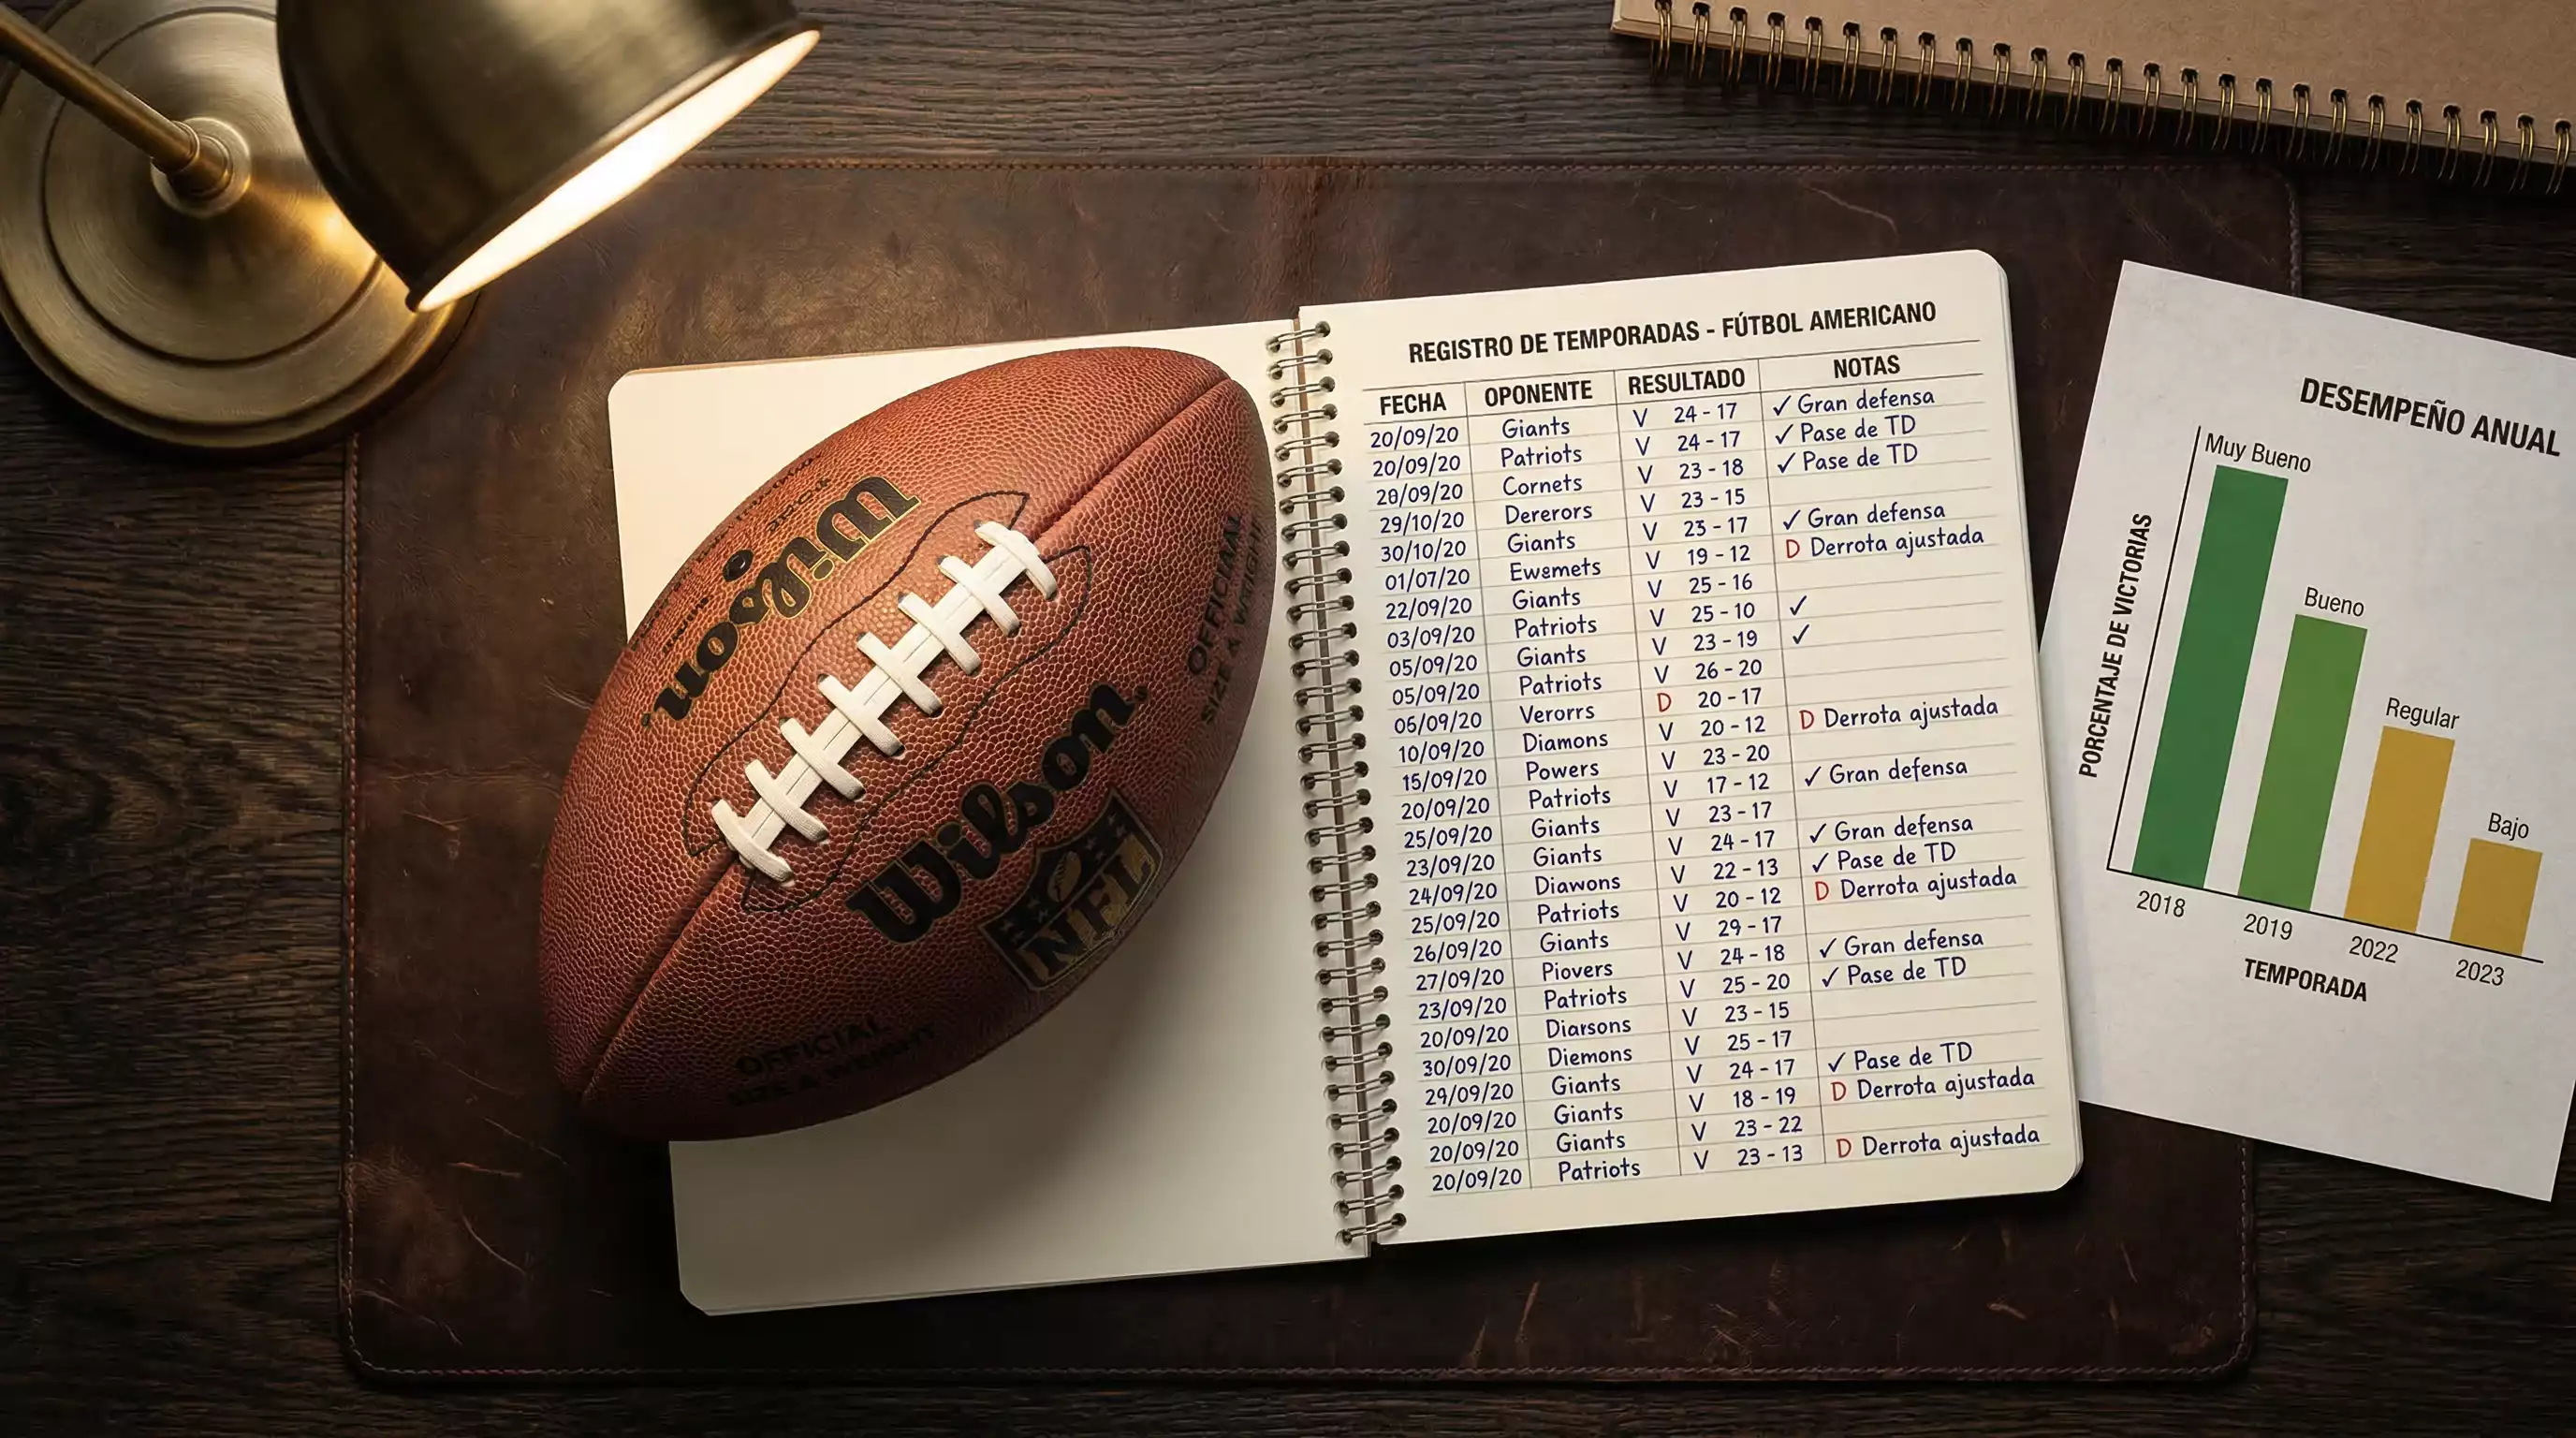 Wilson
Wilson
NFL
OFFICIAL
SIZE & WEIGHT
OFFICIAL
REGISTRO DE TEMPORADAS - FÚTBOL AMERICANO
FECHA OPONENTE RESULTADO NOTAS
20/09/20 Giants V 24 - 17 ✓ Gran defensa
20/09/20 Patriots V 24 - 17 ✓ Pase de TD
20/09/20 Cornets V 23 - 18 ✓ Pase de TD
29/10/20 Dererors V 23 - 15
30/10/20 Giants V 23 - 17 ✓ Gran defensa
01/07/20 Ewemets V 19 - 12 D Derrota ajustada
22/09/20 Giants V 25 - 16
03/09/20 Patriots V 25 - 10 ✓
05/09/20 Giants V 23 - 19 ✓
05/09/20 Patriots V 26 - 20
05/09/20 Verorrs D 20 - 17
10/09/20 Diamons V 20 - 12 D Derrota ajustada
15/09/20 Powers V 23 - 20
20/09/20 Patriots V 17 - 12 ✓ Gran defensa
25/09/20 Giants V 23 - 17
23/09/20 Giants V 24 - 17 ✓ Gran defensa
24/09/20 Diawons V 22 - 13 ✓ Pase de TD
25/09/20 Patriots V 20 - 12 D Derrota ajustada
26/09/20 Giants V 29 - 17
27/09/20 Piovers V 24 - 18 ✓ Gran defensa
23/09/20 Patriots V 25 - 20 ✓ Pase de TD
20/09/20 Diarsons V 23 - 15
30/09/20 Diemons V 25 - 17
29/09/20 Giants V 24 - 17 ✓ Pase de TD
20/09/20 Giants V 18 - 19 D Derrota ajustada
20/09/20 Giants V 23 - 22
20/09/20 Patriots V 23 - 13 D Derrota ajustada
DESEMPEÑO ANUAL
PORCENTAJE DE VICTORIAS
Muy Bueno
Bueno
Regular
Bajo
2018 2019 2022 2023
TEMPORADA